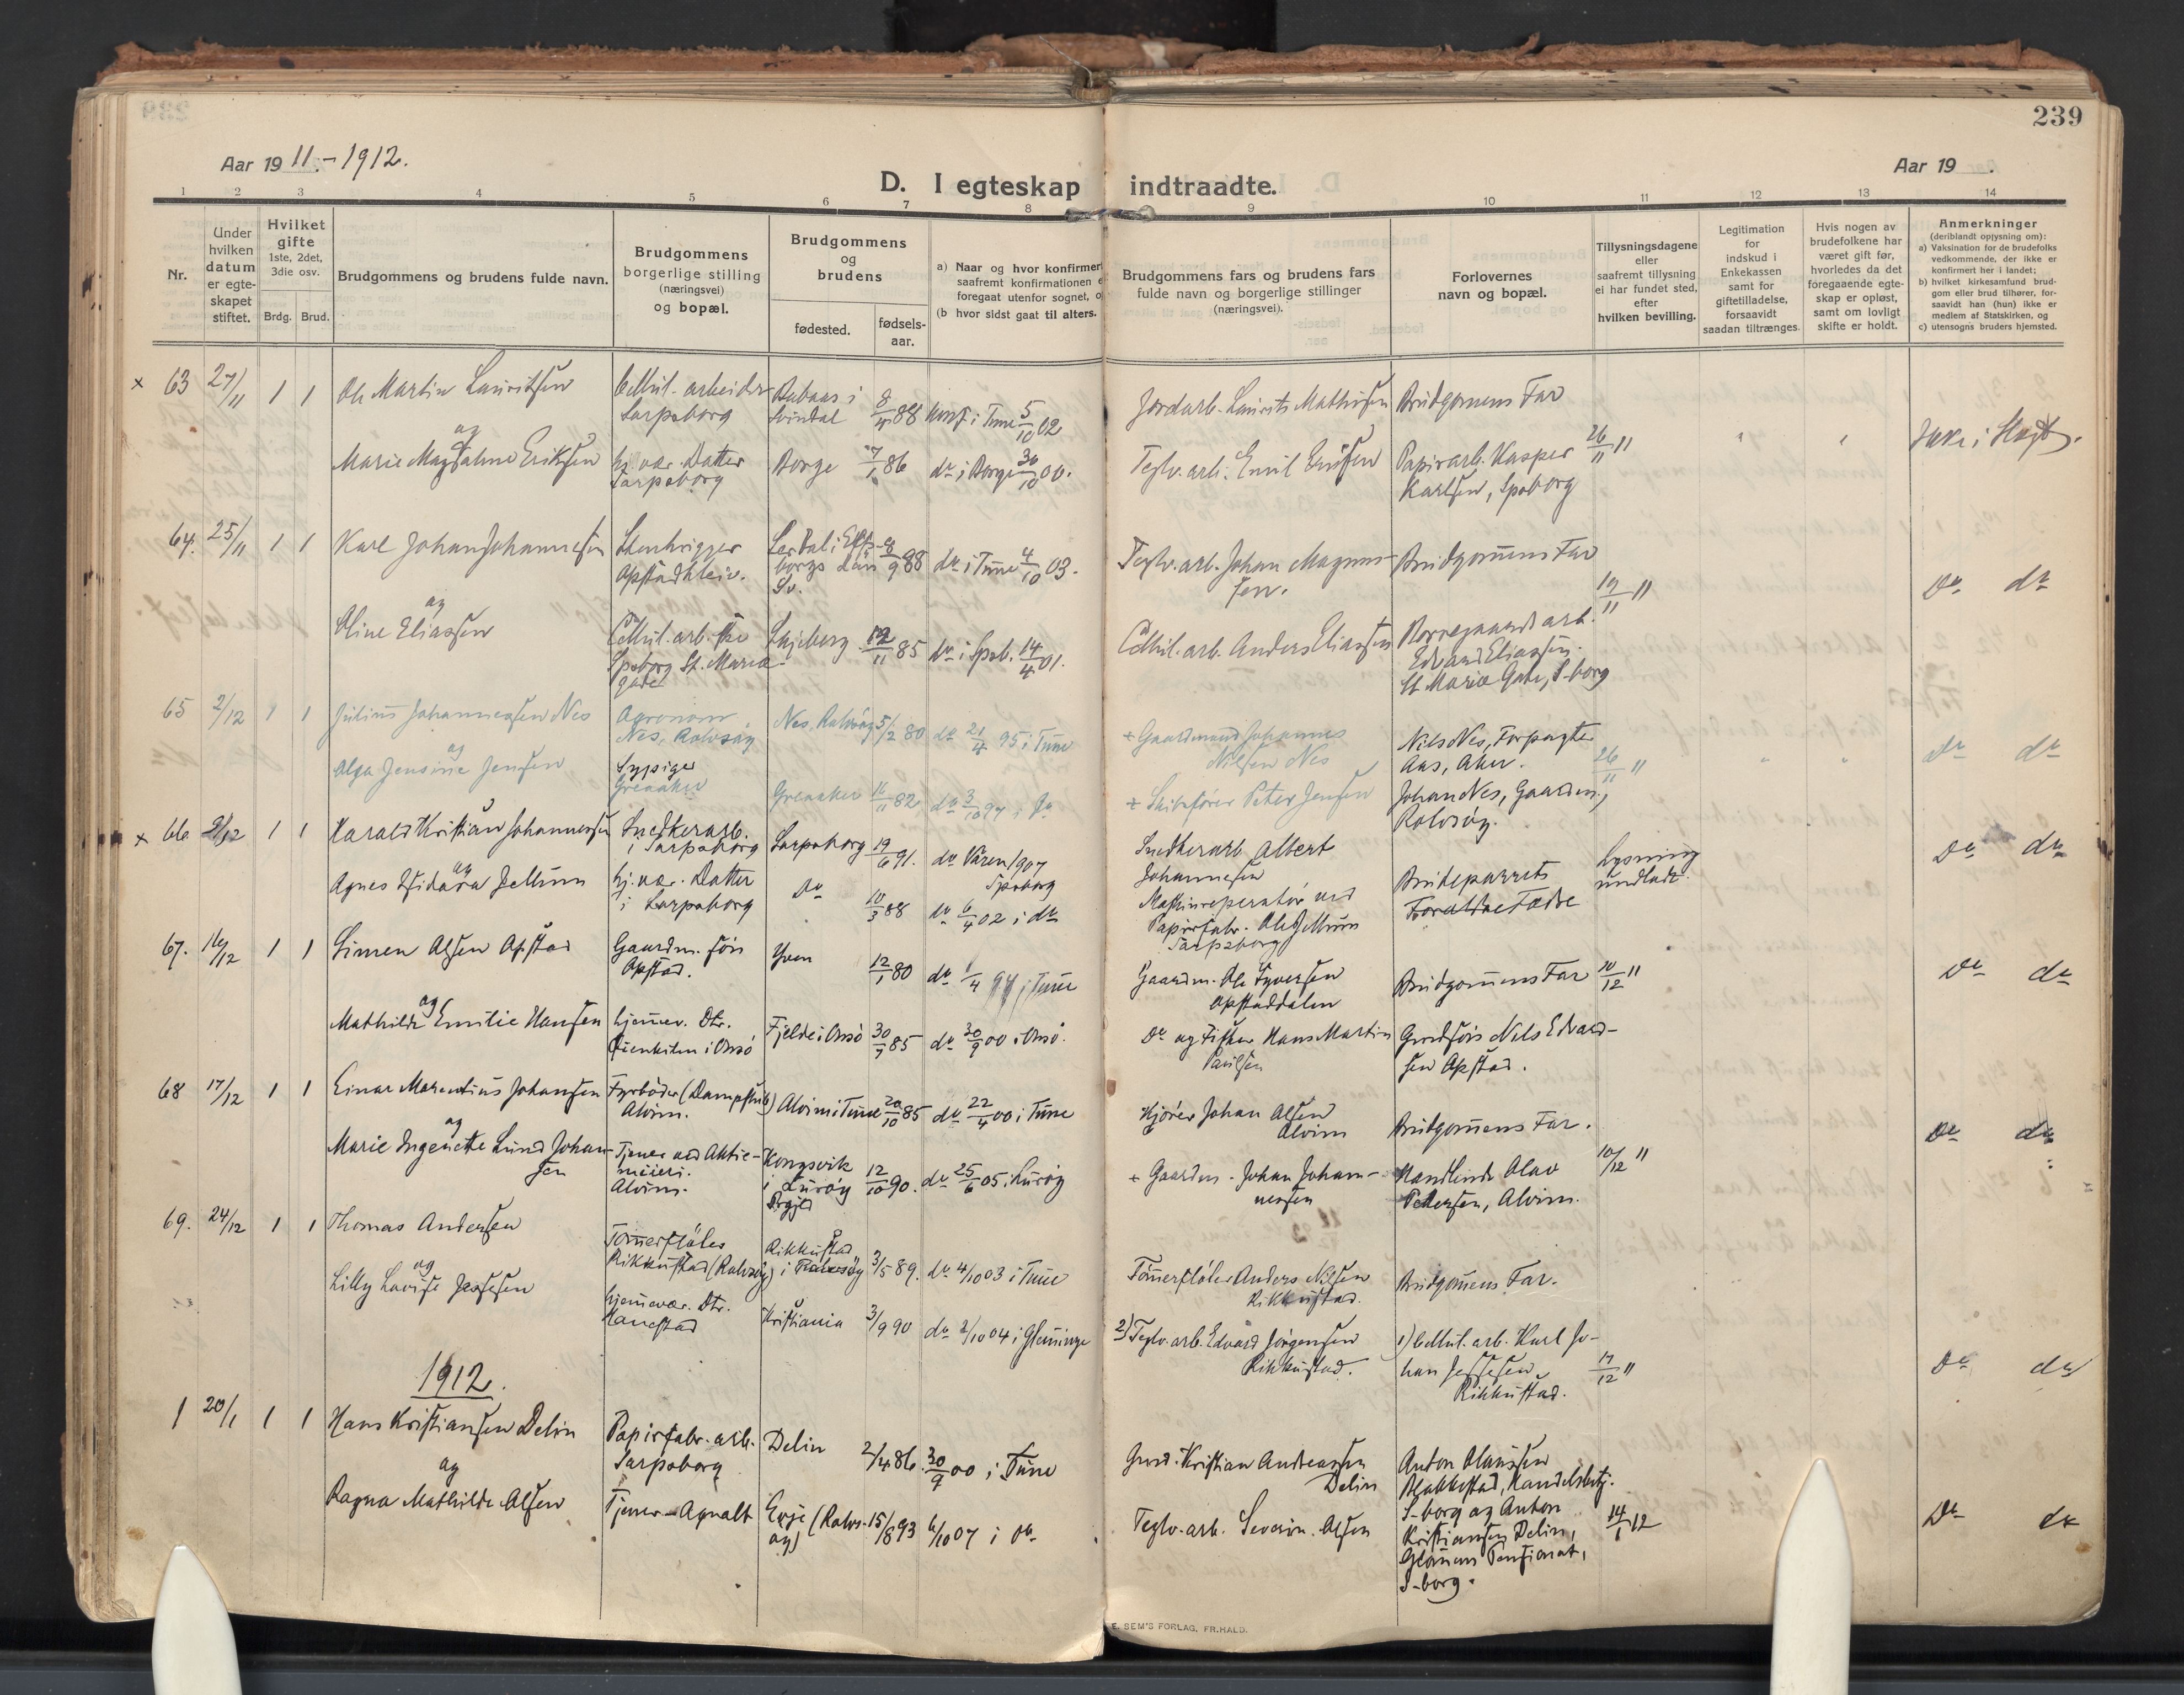 239
Aar 1911.-1912.
Aar 19 .
D. I egteskap indtraadte.
1 2 3 4 5 6 7 8 9 10 11 12 13 14
Nr.
Under hvilken datum er egte-skapet stiftet.
Hvilket gifte 1ste, 2det, 3die osv.
Brdg. Brud.
Brudgommens og brudens fulde navn.
Brudgommens borgerlige stilling (næringsvei) og bopæl.
Brudgommens og brudens
fødested.
fødsels-aar.
a) Naar og hvor konfirmert
saafremt konfirmationen e
foregaat utenfor sognet, o
(b hvor sidst gaat til alters.
Brudgommens fars og brudens fars
fulde navn og borgerlige stillinger
(næringsvei).
Forlovernes
navn og bopæl.
Tillysningsdagene
eller
saafremt tillysning
ei har fundet sted,
efter
hvilken bevilling.
Legitimation
for
indskud i
Enkekassen
samt for
giftetilladelse,
forsaavidt
saadan tiltrænges.
Hvis nogen av
brudefolkene har
været gift før,
hvorledes da det
foregaaende egte-
skap er opløst,
samt om lovligt
skifte er holdt.
Anmerkninger
(deriblandt opjysning om):
a) Vaksination for de brudefolks
vedkommende, der ikke er
konfirmert her i landet;
b) hvilket kirkesamfund brud-
gom eller brud tilhører, for-
saavidt han (hun) ikke er
medlem af Statskirken, og
c) utensogns bruders hjemsted.
x 63 27/11 1 1 Ole Martin Lauritsen
Cellul. arbeider Sarpsborg
i Svindal 8/4 88 konf. i Tune 5/10 02
Jordarb. Laurits Mathisen
Brudgomens Far
og
Marie Magdalene Eriksen
hj. vær. Datter Sarpsborg
Borge 7/1 86 do i Borge 30/10 00.
Teglv. arb. Emil Eriksen
Papirarb. Kasper Karlsen, Spsborg
26/11 11
Ikke i Slegt.
64. 25/11 1 1 Karl Johan Johannesen
Stenhugger Opstadkleiv.
Lerdal i Elfsborgs Län Sv. 8/9 88 do i Tune 4/10 03.
Teglv. arb. Johan Magnussen.
Brudgomens Far
19/11 11
Do do
og
Oline Eliassen
Cellul. arb.ske Spsborg St. Mariægade
Skjeberg 12/11 85 do i Spsb. 14/4 01.
Cellul. arb. Anders Eliassen
Borregaards arb. Edvard Eliassen.
St. Mariæ Gate, S-borg
65 2/12 1 1 Julius Johannessen Nes
Agronom Nes, Rolvsøy
Nes, Rolvsøy 5/2 80 do 21/4 95 i Tune
+ Gaardmand Johannes Nilsen Nes
Nils Nes, Forpagter Aas, Aker.
26/11 11
Do do
og
Olga Jensine Jensen
Sypige Greaaker
Greaaker 11/11 82 do 3/10 97 i Do
+ Skibsfører Peter Jensen
Johan Nes, Gaardm., Rolvsøy.
x 66 2/12 1 1 Harald Kristian Johannesen
Snedkerarb. i Sarpsborg
Sarpsborg 19/6 91. do Våren 1907 Spsborg
Snedkerarb. Albert Johannesen
Brudeparrets Fædre
Lysning undladt.
Do do
og
Agnes Isidora Jellum
hj. vær. Datter i Sarpsborg
Do 10/3 88 do 6/4 02 i do
Maskinreperatør ved Papirfabr. Ole Jellum Sarpsborg
67. 16/12 1 1 Simen Olsen Opstad
Gaardm. søn Opstad.
Yven 12/1 80 do 1/4 94 i Tune
Gaardm. Ole Syversen Opstaddalen
Brudgomens Far
10/12 11
Do do
og
Mathilde Emilie Hansen
hjemev. Dtr. i Onsø
Fjelde i Onsø 30/9 85 do 30/9 00 i Onsø.
Do og Fisker Hans Martin Paulsen
Grdsøn Nels Edvardsen Opstad.
68 17/12 1 1 Einar Marentius Johansen
Fyrbøder (Dampskib) Alvim.
Alvim i Tune 20/10 85 do 22/4 00 i Tune
Kjører Johan Olsen Alvim
Brudgomens Far.
10/12 11
Do do
og
Marie Ingenette Lund Johansen
Tjener ved Aktiemeieri. Alvim.
Kongsvik i Lurøy Prgjeld 12/10 90. do 25/6 05 i Lurøy
+ Gaardm. Johan Johannessen
Handlende Olav Pettersen, Alvim.
69. 24/12 1 1 Thomas Andersen
Tømerfløter Rikkustad (Rolvsøy)
Rikkustad i Rolvsøy 3/5 89. do 4/10 03 i Tune
Tømerfløter Anders Nilsen Rikkustad.
Brudgomens Far.
og
Lilly Lovise Jessesen
hjemevær. Dtr. Hanestad
Kristiania 3/9 90 do 2/10 04 i Glemminge
2) Teglv. arb. Edvard Jørgensen Rikkustad.
1) Cellul. arb. Karl Johan Jessesen Rikkustad.
17/12 11
Do do
1912.
1 20/1 1 1 Hans Kristiansen Delin
Papirfabr. arb. Sarpsborg
Delin 2/4 86. 30/9 00 i Tune
Grdm. Kristian Andreassen Delin
Anton Olaussen Blakkestad, Handelsbetj. S-borg og Anton Kristiansen Delin, Glomens Pensionat, S-borg.
14/1 12
Do do
og
Ragna Mathilde Olsen
Tjener - Agnalt
Evje (Rolvsøy) 15/8 93 6/10 07 i Do
Teglv. arb. Severin Olsen
E. SEM'S FORLAG, FR.HALD.